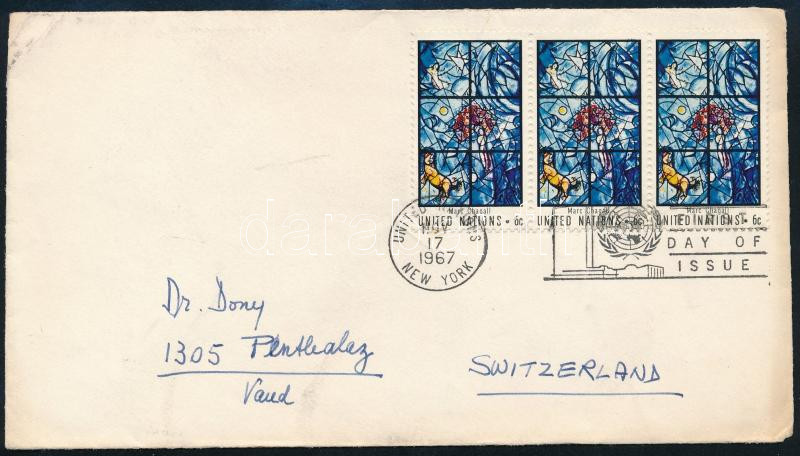 Marc Chagall Marc Chagall Marc Chagall
UNITED NATIONS • 6c UNITED NATIONS • 6c UNITED NATIONS • 6c
UNITED NATIONS
NOV
17
1967
NEW YORK
DAY OF
ISSUE
Dr. Dony
1305 Penthalaz
Vaud
SWITZERLAND